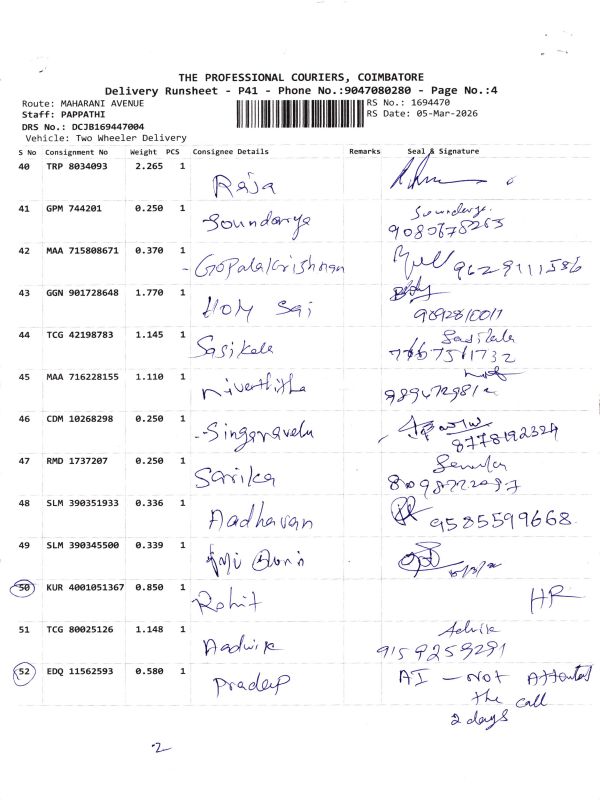 THE PROFESSIONAL COURIERS, COIMBATORE
Delivery Runsheet - P41 - Phone No.:9047080280 - Page No.:4
Route: MAHARANI AVENUE RS No.: 1694470
Staff: PAPPATHI RS Date: 05-Mar-2026
DRS No.: DCJB169447004
Vehicle: Two Wheeler Delivery
S No Consignment No Weight PCS Consignee Details Remarks Seal & Signature
40 TRP 8034093 2.265 1 Raja
41 GPM 744201 0.250 1 Soundarya Soundarya.
9080678263
42 MAA 715808671 0.370 1 - Gopalakrishnan 9629111586
43 GGN 901728648 1.770 1 Hom Sai
44 TCG 42198783 1.145 1 Sasikala Sasikala
7767751732
45 MAA 716228155 1.110 1
46 CDM 10268298 0.250 1 - Singaravelu
8778192324
47 RMD 1737207 0.250 1 Sarika
48 SLM 390351933 0.336 1 Aadhavan 9585599668
49 SLM 390345500 0.339 1
50 KUR 4001051367 0.850 1 Rohit HR
51 TCG 80025126 1.148 1 Aadwik Advik
9159259291
52 EDQ 11562593 0.580 1 Pradeep AI - Not Attented
the call
2 days
2